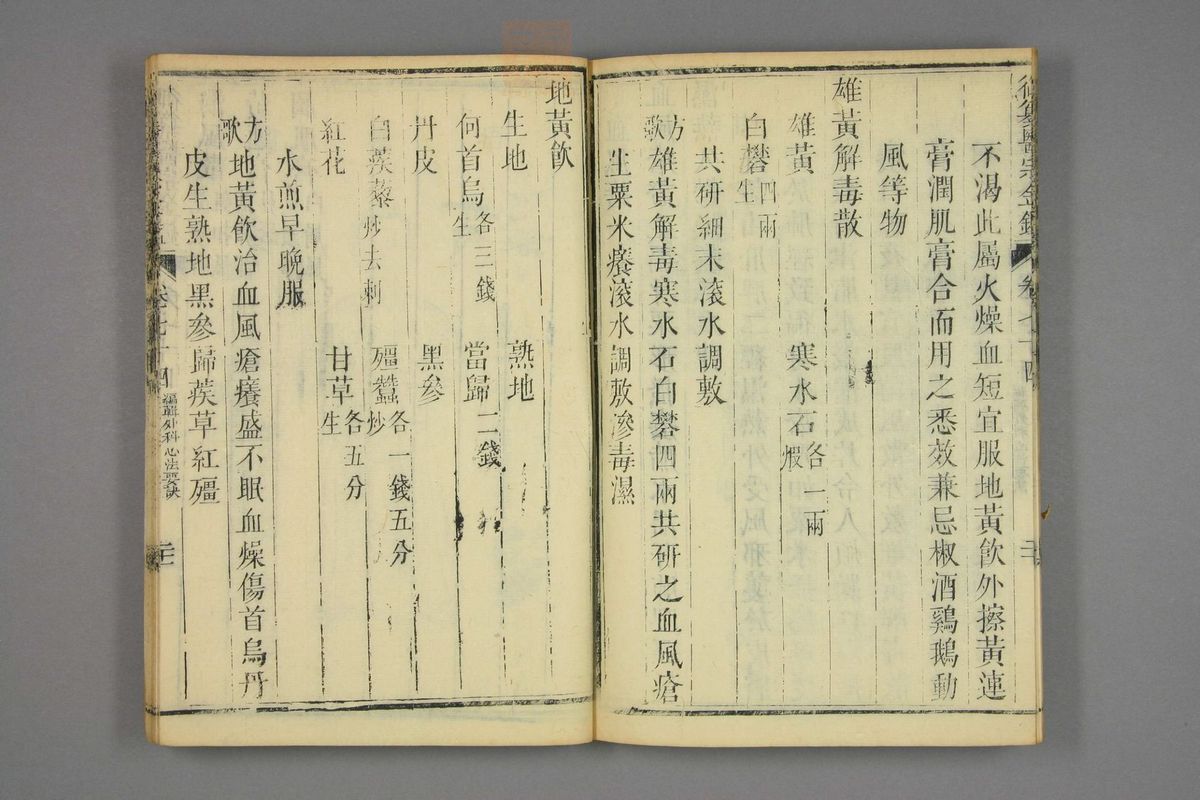 不渴此屬火燥血短宜服地黃飲外擦黃連
膏潤肌膏合而用之悉效兼忌椒酒鷄鵝動
風等物
雄黃解毒散
雄黃 寒水石煆各一兩
白礬四兩生
共研細末滾水調敷
方歌 雄黃解毒寒水石白礬四兩共研之血風瘡
生粟米癢滾水調敷滲毒濕
地黃飲
生地 熟地
何首烏生各三錢 當歸二錢
丹皮 黑參
白蒺藜炒去刺 殭蠶炒各一錢五分
紅花 甘草生各五分
水煎早晚服
方歌 地黃飲治血風瘡癢盛不眠血燥傷首烏丹
皮生熟地黑參歸蒺草紅殭
卷七十四 編輯外科心法要訣